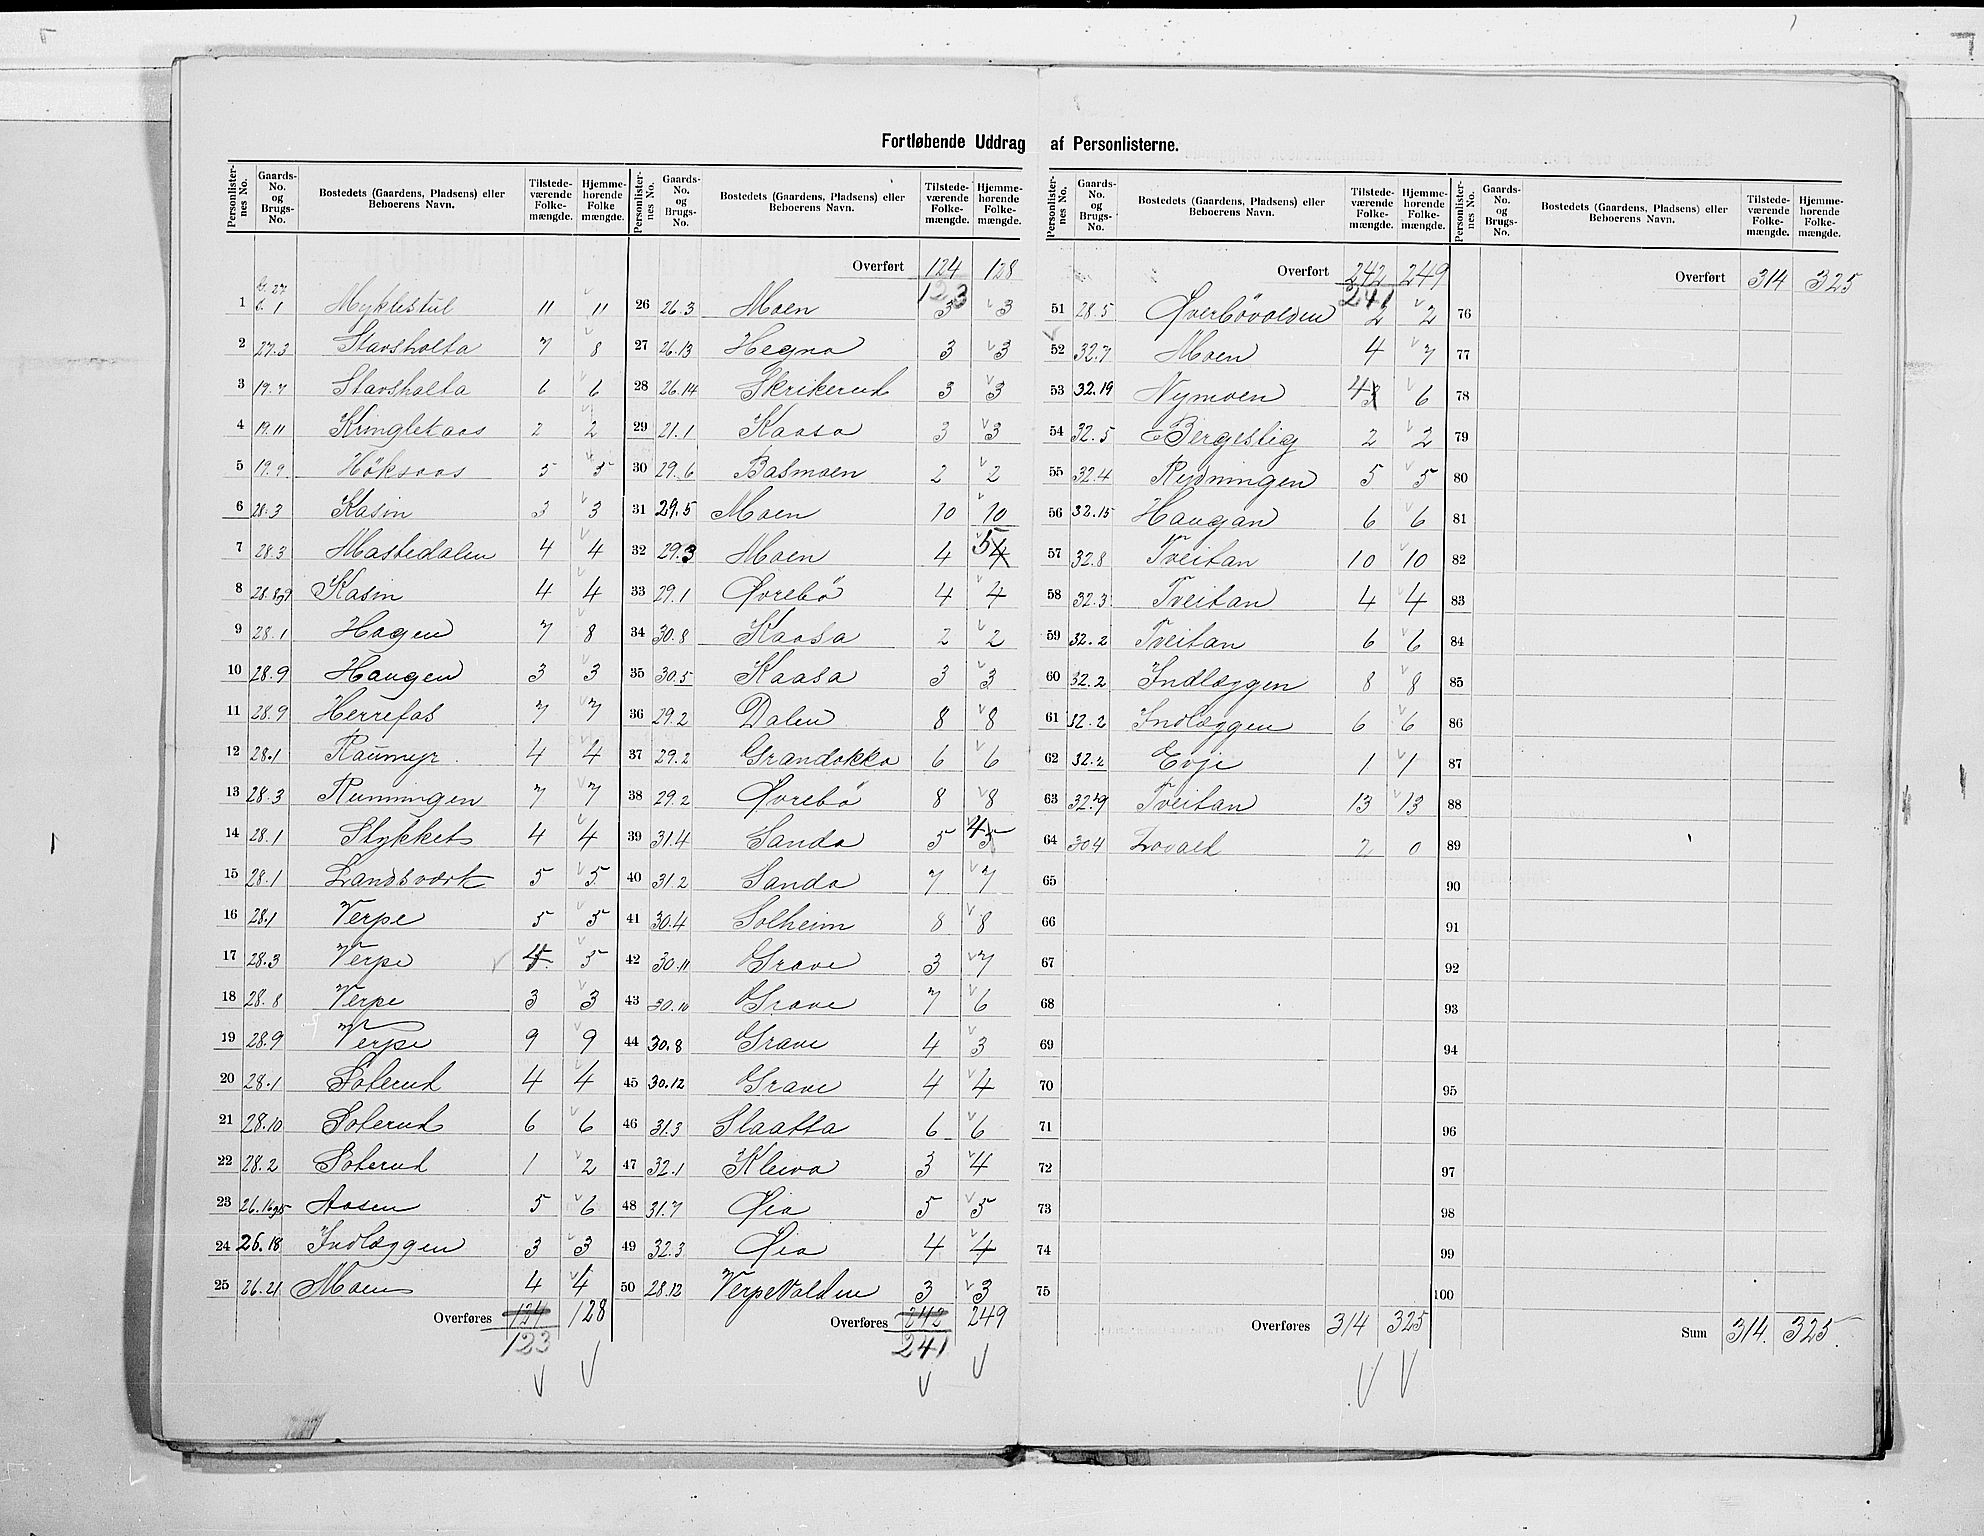 Fortløbende Uddrag af Personlisterne.
Personlister-nes No. Gaards-No. og Brugs-No. Bostedets (Gaardens, Pladsens) eller Beboerens Navn. Tilstede-værende Folke-mængde. Hjemme-hørende Folke mængde.
1 G. 27 b. 1 Myklestul 11 11
2 27.3 Stavsholta 7 8
3 19.7 Stavsholta 6 6
4 19.11 Kringletaas 2 2
5 19.9 Höksaas 5 5
6 28.3 Kasin 3 3
7 28.3 Mastedalen 4 4
8 28.8og9 Kasin 4 4
9 28.1 Hagen 7 8
10 28.9 Haugen 3 3
11 28.9 Herrefos 7 7
12 28.1 Raumyr 4 4
13 28.3 Runningen 7 7
14 28.1 Stykket 4 4
15 28.1 Landsværk 5 5
16 28.1 Verpe 5 5
17 28.3 Verpe 4 5
18 28.8 Verpe 3 3
19 28.9 Verpe 9 9
20 28.1 Soterud 4 4
21 28.10 Soterud 6 6
22 28.2 Soterud 1 2
23 26.16og5 Aasen 5 6
24 26.18 Indlæggen 3 3
25 26.21 Moen 4 4
Overføres 124 128
123
Personlister-nes No. Gaards-No. og Brugs-No. Bostedets (Gaardens, Pladsens) eller Beboerens Navn. Tilstede-værende Folke-mængde. Hjemme-hørende Folke-mængde.
Overført 124 128
123
26 26.3 Moen 3 3
27 26.13 Hegna 3 3
28 26.14 Skrikerud 3 3
29 21.1 Kaasa 3 3
30 29.6 Basmoen 2 2
31 29.5 Moen 10 10
32 29.3 Moen 4 5 4
33 29.1 Øvrebö 4 4
34 30.8 Kaasa 2 2
35 30.5 Kaasa 3 3
36 29.2 Dalen 8 8
37 29.2 Grandokka 6 6
38 29.2 Øvrebö 8 8
39 31.4 Sanda 5 4 5
40 31.2 Sanda 7 7
41 30.4 Solheim 8 8
42 30.11 Grave 3 7
43 30.10 Grave 7 6
44 30.8 Grave 4 3
45 30.12 Grave 4 4
46 31.3 Slaatta 6 6
47 32.1 Kleiva 3 4
48 31.7 Øia 5 5
49 32.3 Øia 4 4
50 28.12 Verpevolden 3 3
Overføres 242 249
241
Personlister-nes No. Gaards-No. og Brugs-No. Bostedets (Gaardens, Pladsens) eller Beboerens Navn. Tilstede-værende Folke-mængde. Hjemme-hørende Folke-mængde.
Overført 242 249
241
51 28.5 Øverbövolden 2 2
52 32.7 Moen 4 7
53 32.19 Nymoen 4 3 6
54 32.5 Bergestig 2 2
55 32.4 Rydningen 5 5
56 32.15 Haugan 6 6
57 32.8 Tveitan 10 10
58 32.3 Tveitan 4 4
59 32.2 Tveitan 6 6
60 32.2 Indlæggen 8 8
61 32.2 Indlæggen 6 6
62 32.2 Evje 1 1
63 32.9 Tveitan 13 13
64 30 4 Lovald 2 0
65
66
67
68
69
70
71
72
73
74
75
Overføres 314 325
Personlister-nes No. Gaards-No. og Brugs-No. Bostedets (Gaardens, Pladsens) eller Beboerens Navn. Tilstede-værende Folke-mængde. Hjemme-hørende Folke-mængde.
Overført 314 325
76
77
78
79
80
81
82
83
84
85
86
87
88
89
90
91
92
93
94
95
96
97
98
99
100
Sum 314. 325.